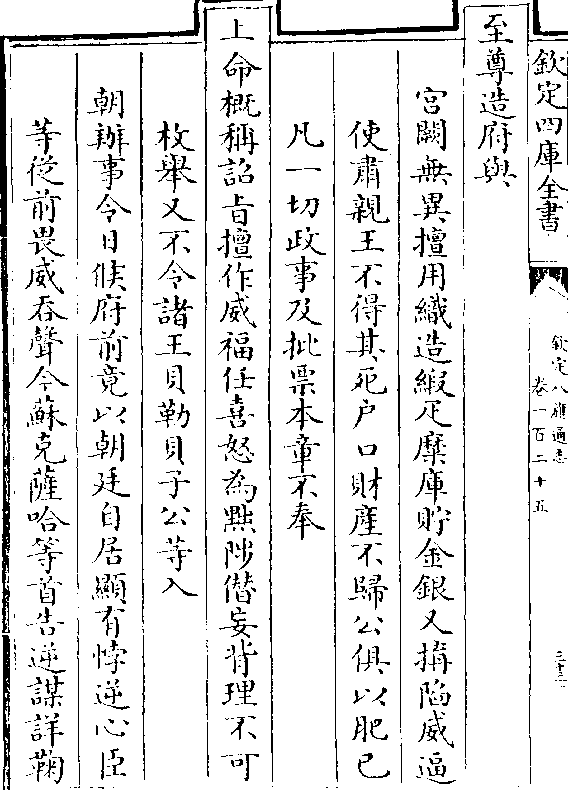 欽定四庫全書
欽定八旗通志
卷一百二十五
三十三
至尊造府與
宮闕無異擅用織造緞疋糜庫貯金銀又搆陷威逼
使肅親王不得其死户口財產不歸公俱以肥己
凡一切政事及批票本章不奉
上命概稱詔旨擅作威福任喜怒為黜陟僣妄背理不可
枚舉又不令諸王貝勒貝子公等入
朝辦事令日候府前竟以朝廷自居顯有悖逆心臣
等從前畏威吞聲今蘇克薩哈等首告逆謀詳鞫